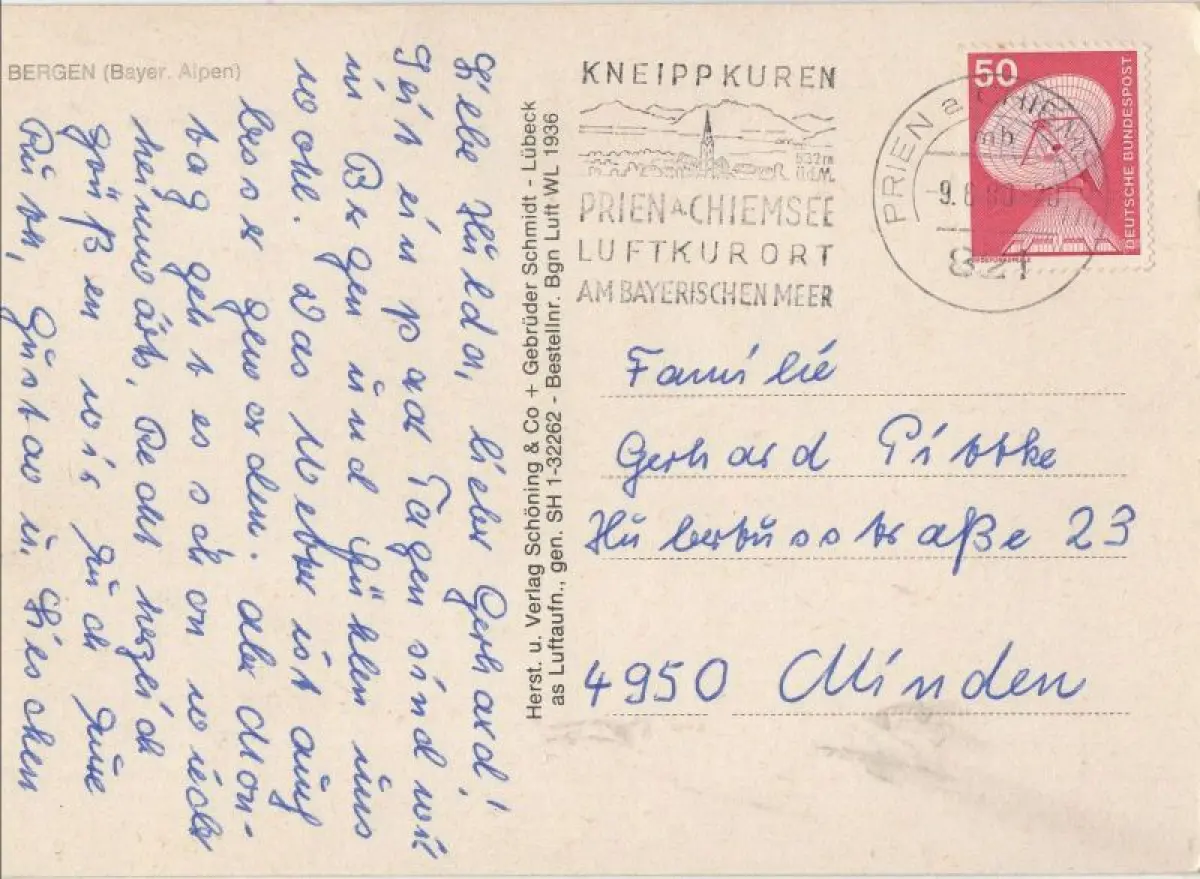 BERGEN (Bayer. Alpen)
Liebe Hilda, lieber Gerhard!
Seit ein paar Tagen sind wir
in Bergen und fühlen uns
wohl. Das Wetter ist auch
besser geworden. aber Mon-
tag geht es schon wieder
heimwärts. Recht herzlich
grüßen wir Euch Eure
Gustav u. Lieschen
Herst. u. Verlag Schöning & Co + Gebrüder Schmidt - Lübeck
as Luftaufn., gen. SH 1-32262 - Bestellnr. Bgn Luft WL 1936
KNEIPPKUREN
532m
ü.d.M.
PRIEN A. CHIEMSEE
LUFTKURORT
AM BAYERISCHEN MEER
PRIEN a CHIEMSEE
mb
-9.8.80-20
821
50
DEUTSCHE BUNDESPOST
Familie
Gerhard Pittke
Hubertusstraße 23
4950 Minden